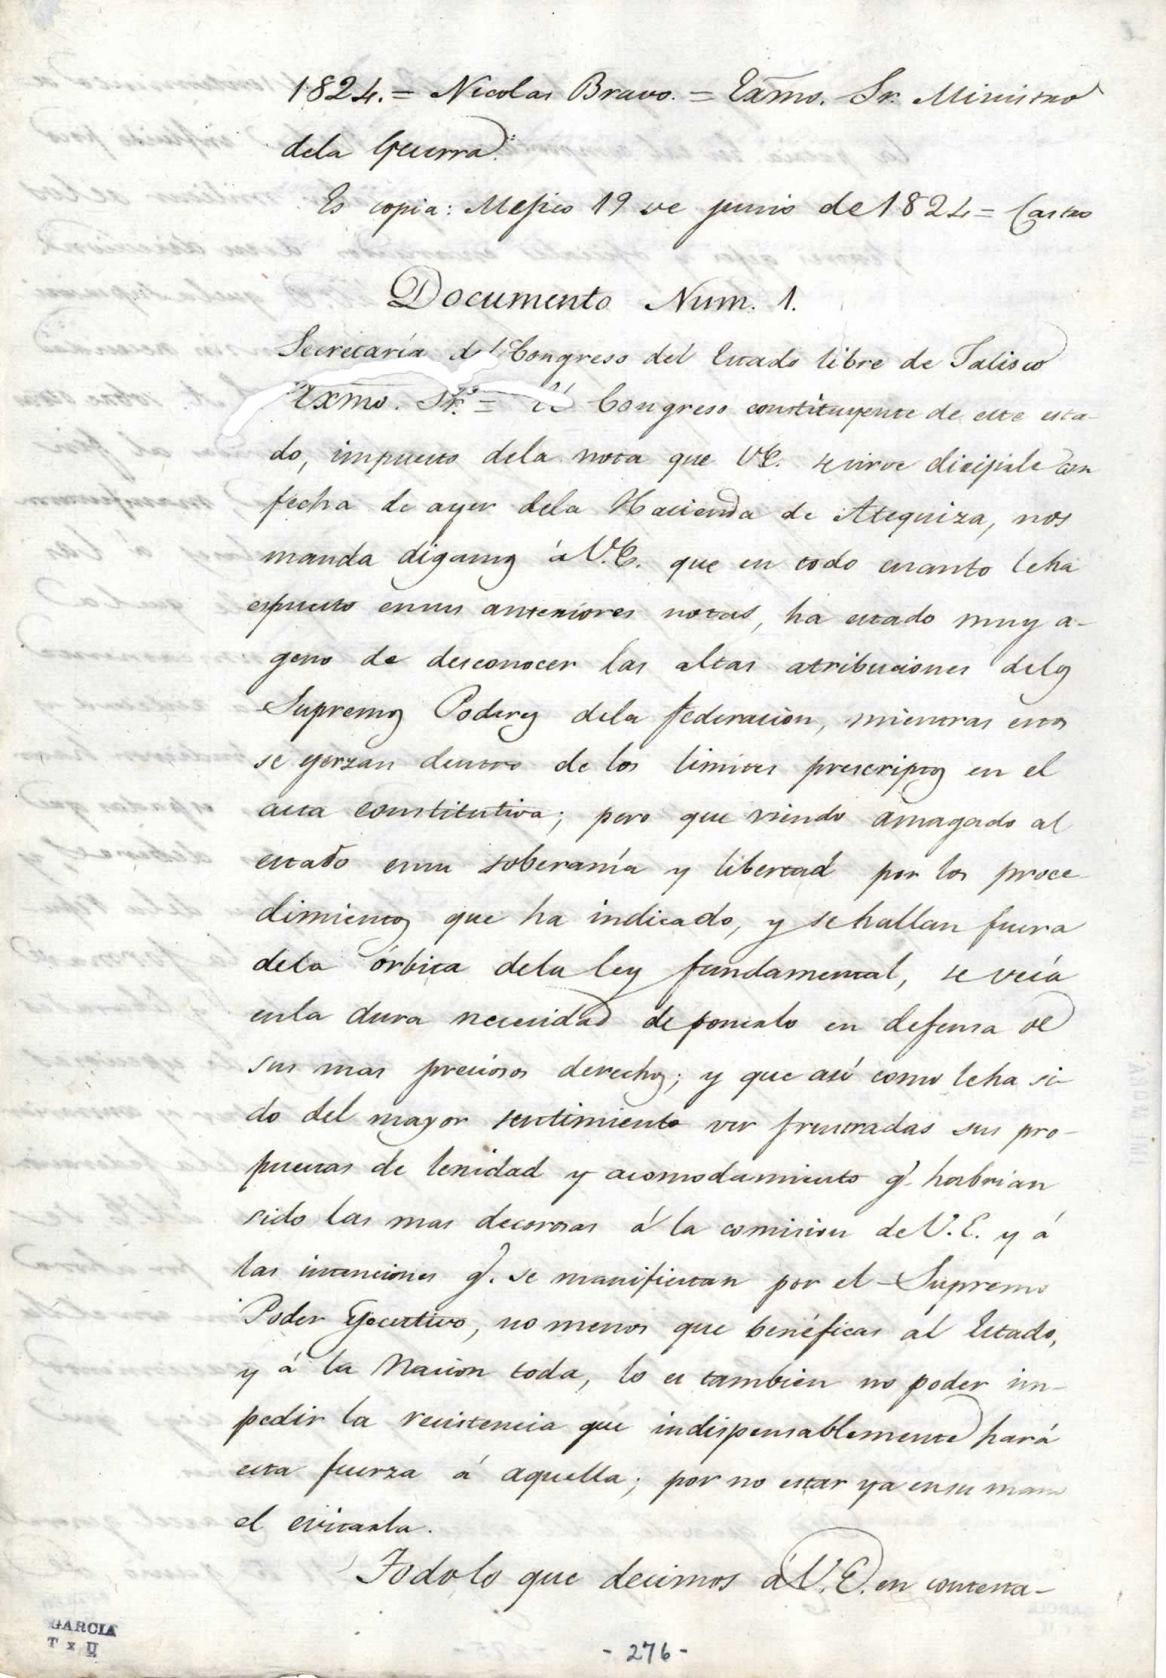 1824. = Nicolas Bravo. = Exmo. Sr. Ministro
dela Guerra.
Es copia: Mejico 19 de junio de 1824 = Castro
Documento Num. 1.
Secretaría del Congreso del Estado libre de Jalisco
Exmo. Sr. = El Congreso constituyente de este esta-
do, impuesto dela nota que V.E. se sirve dirijirle con
fecha de ayer dela Hacienda de Atequiza, nos
manda digamos á V.E. que en todo cuanto leha
espuesto ensus anteriores notas, ha estado muy a-
geno de desconocer las altas atribuciones delos
Supremos Poderes dela federacion, mientras estos
se ejerzan dentro de los limites prescriptos en el
acta constitutiva; pero que viendo amagado al
estado ensu soberanía y libertad por los proce-
dimientos que ha indicado, y sehallan fuera
dela órbita dela ley fundamental, se veía
enla dura necesidad de ponerlo en defensa de
sus mas preciosos derechos; y que así como leha si-
do del mayor sentimiento ver frustradas sus pro-
puestas de lenidad y acomodamiento q. habrian
sido las mas decorosas á la comision de V.E. y á
las intenciones q. se manifiestan por el Supremo
Poder Ejecutivo, no menos que benéficas al Estado,
y á la Nacion toda, lo es tambien no poder im-
pedir la resistencia que indispensablemente hará
esta fuerza á aquella; por no estar ya ensu mano
el evitarla.
Todo lo que decimos á V.E. en contesta-
GARCIA
T x II
- 276 -